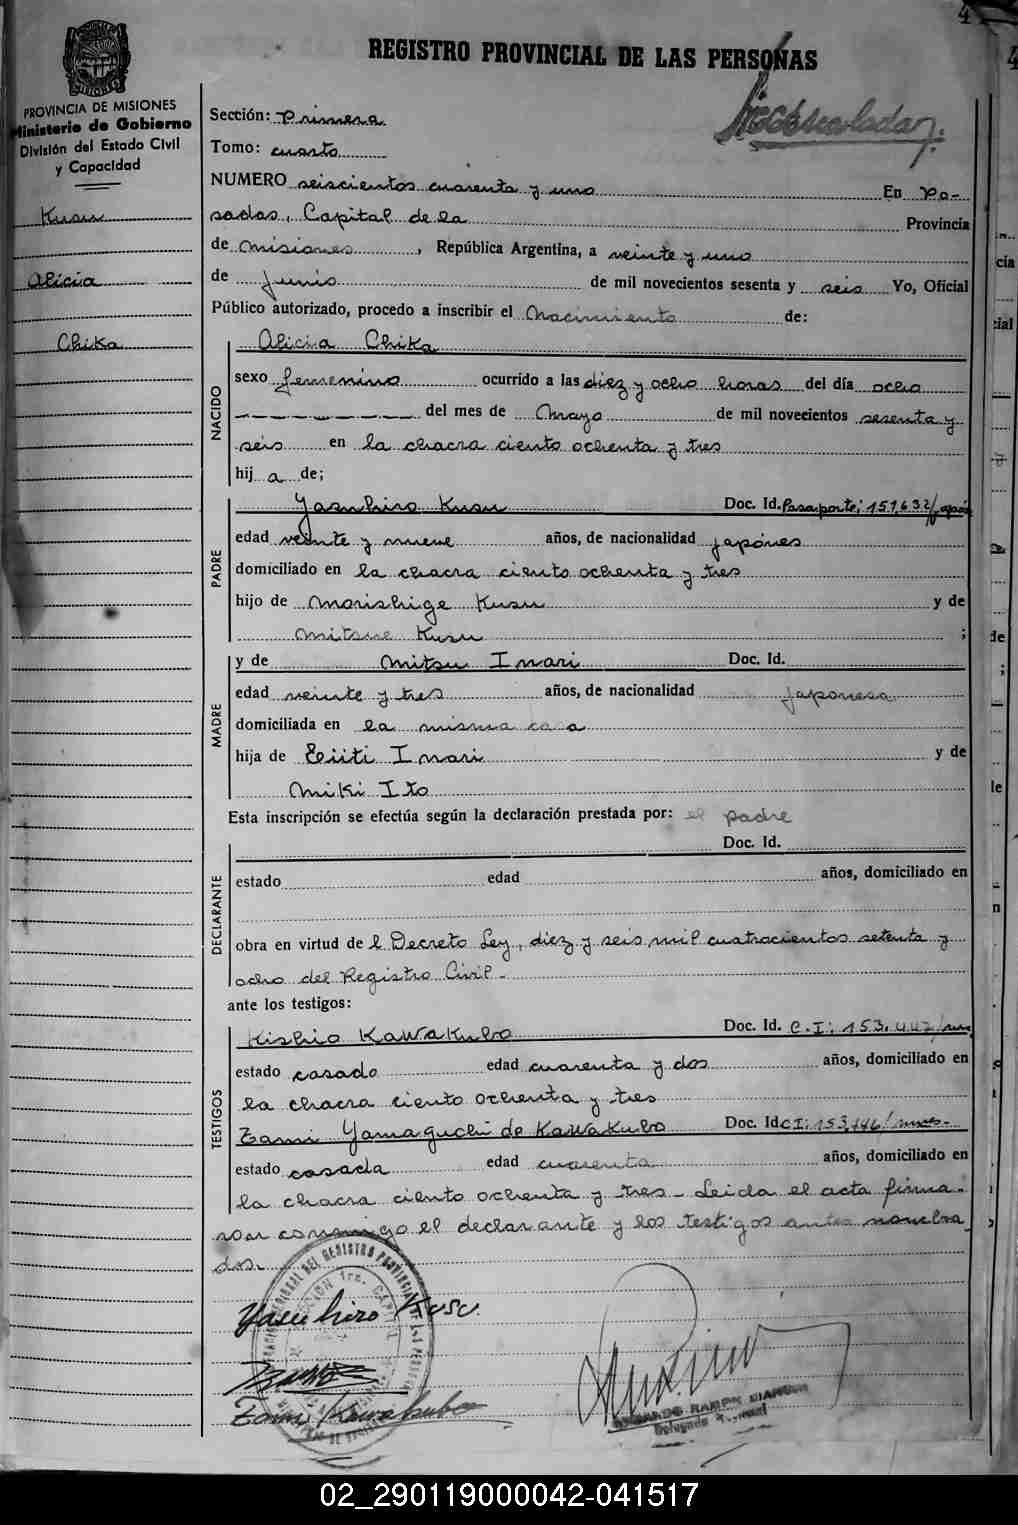 4
REGISTRO PROVINCIAL DE LAS PERSONAS
PROVINCIA DE MISIONES
Ministerio de Gobierno
División del Estado Civil
y Capacidad
Kusu
Alicia
Chika
Sección: Primera
Tomo: cuarto
NUMERO seiscientos cuarenta y uno En Po-
sadas, Capital de la Provincia
de Misiones, República Argentina, a veinte y uno
de Junio de mil novecientos sesenta y seis Yo, Oficial
Público autorizado, procedo a inscribir el Nacimiento de:
NACIDO
Alicia Chika
sexo femenino ocurrido a las diez y ocho horas del día ocho
del mes de Mayo de mil novecientos sesenta y
seis en la chacra ciento ochenta y tres
hij a de;
PADRE
Yasuhiro Kusu Doc. Id. Pasaporte: 151,632/japón
edad veinte y nueve años, de nacionalidad japónes
domiciliado en la chacra ciento ochenta y tres
hijo de Morishige Kusu y de
Mitsue Kusu ;
MADRE
y de Mitsu Inari Doc. Id.
edad veinte y tres años, de nacionalidad japonesa
domiciliada en la misma casa
hija de Eiiti Inari y de
Miki Ito
Esta inscripción se efectúa según la declaración prestada por: el padre
DECLARANTE
Doc. Id.
estado edad años, domiciliado en
obra en virtud de l Decreto Ley, diez y seis mil cuatrocientos setenta y
ocho del Registro Civil -
ante los testigos:
TESTIGOS
Kishio Kawakubo Doc. Id. C.I: 153.447/mnes
estado casado edad cuarenta y dos años, domiciliado en
la chacra ciento ochenta y tres
Tami Yamaguchi de Kawakubo Doc. Id CI: 153,446/mnes-
estado casada edad cuarenta años, domiciliado en
la chacra ciento ochenta y tres - Leida el acta firma-
ron conmigo el declarante y los testigos antes nombra-
dos.
Yasuhiro Kusu
Tami Kawakubo
02_290119000042-041517